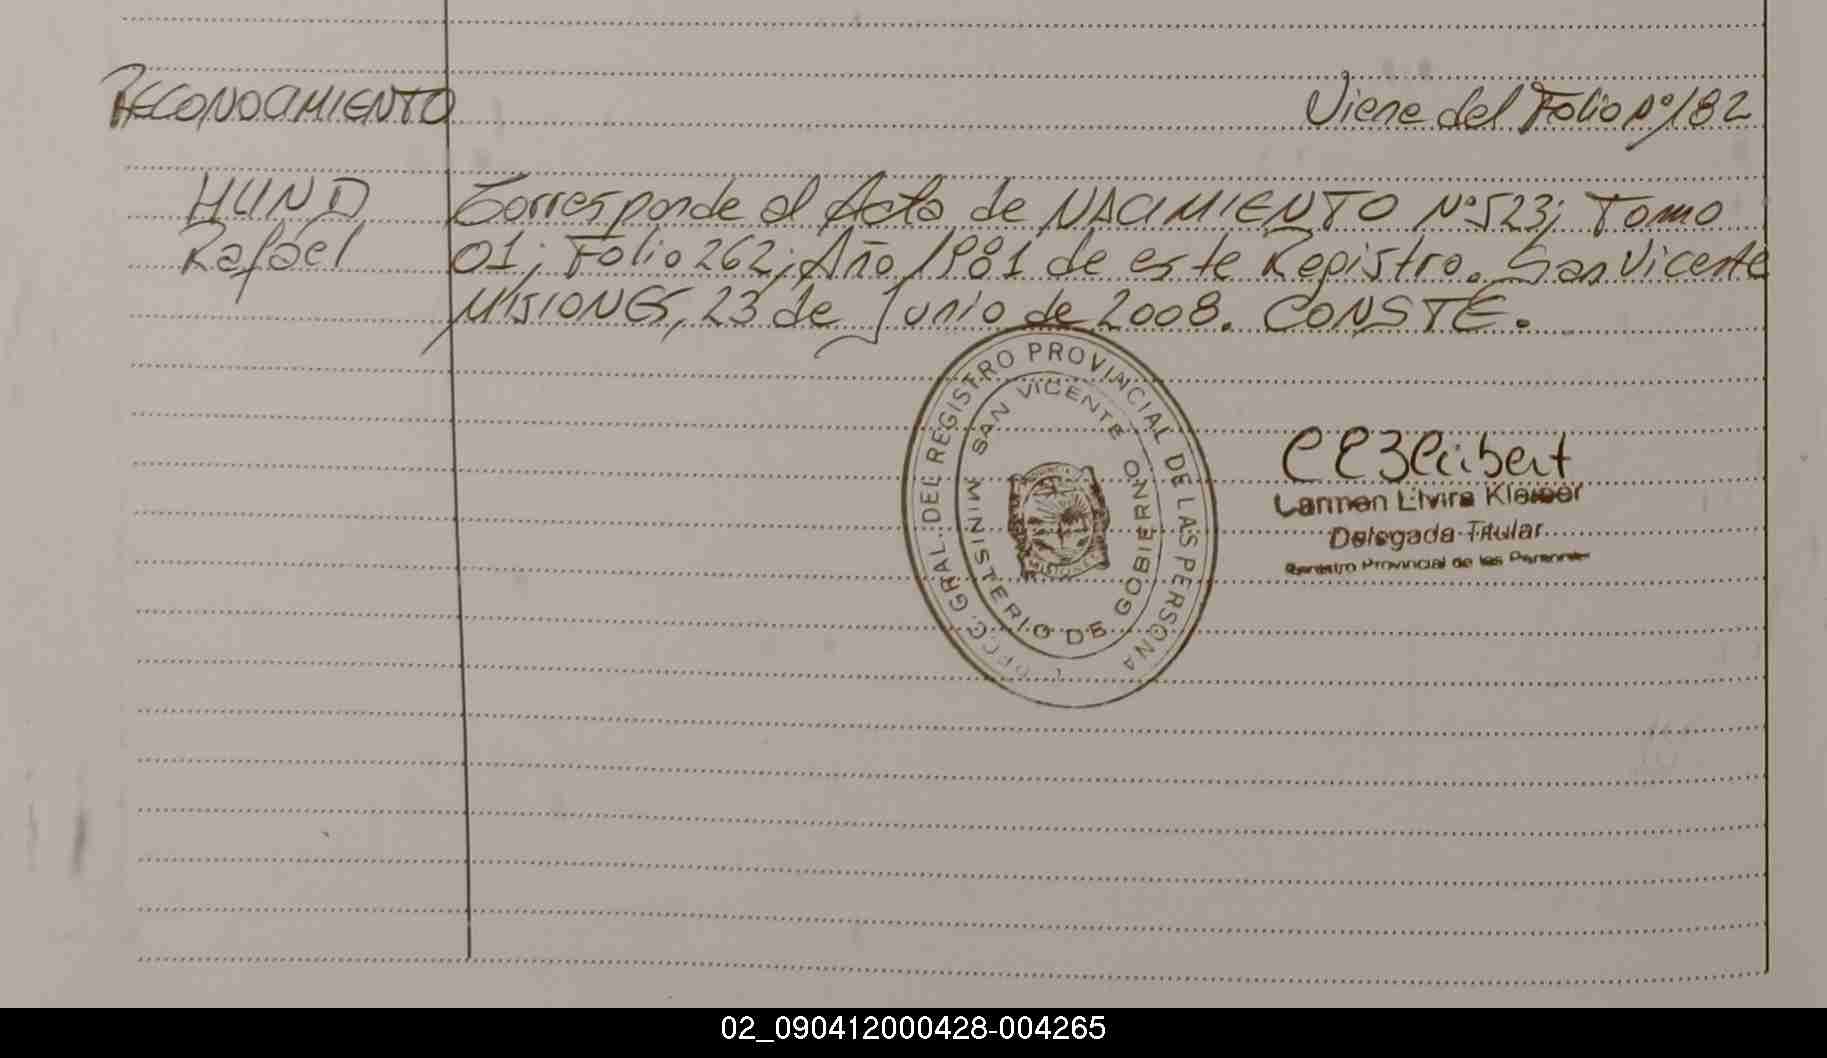 RECONOCIMIENTO
Viene del Folio Nº 182
HUND
Rafael
Corresponde al Acta de NACIMIENTO Nº 523; Tomo
01; Folio 262; Año 1981 de este Registro. San Vicente
MISIONES, 23 de Junio de 2008. CONSTE.
GRAL. DEL REGISTRO PROVINCIAL DE LAS PERSONA
SAN VICENTE
MINISTERIO DE GOBIERNO
MISIONES
Carmen Elvira
Delegada Titular
Registro Provincial de las Personas
02_090412000428-004265